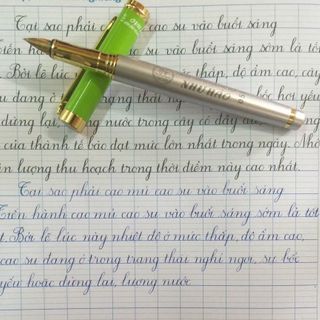 Tại sao phải cao su vào buổi sáng
Tiến hàn cao su vào buổi sáng sớm là tốt
Bởi lẽ lúc ức thấp, độ ẩm cao,
su đang ở trạng thái ng bốc hơi yếu
dừng lại, lượng nước trong cây có đầy đủ,
của thành tế bào đạt mức lớn nhất trong ngày.
ản lượng thu hoạch trong thời điểm này cao nhất.
Tại sao phải cạo mủ cao su vào buổi sáng
Tiến hành cạo mủ cao su vào buổi sáng sớm là tốt
t. Bởi lẽ lúc này nhiệt độ ở mức thấp, độ ẩm cao,
cao su đang ở trong trạng thái nghỉ ngơi, sự bốc
yếu hoặc dừng lại, lượng nước